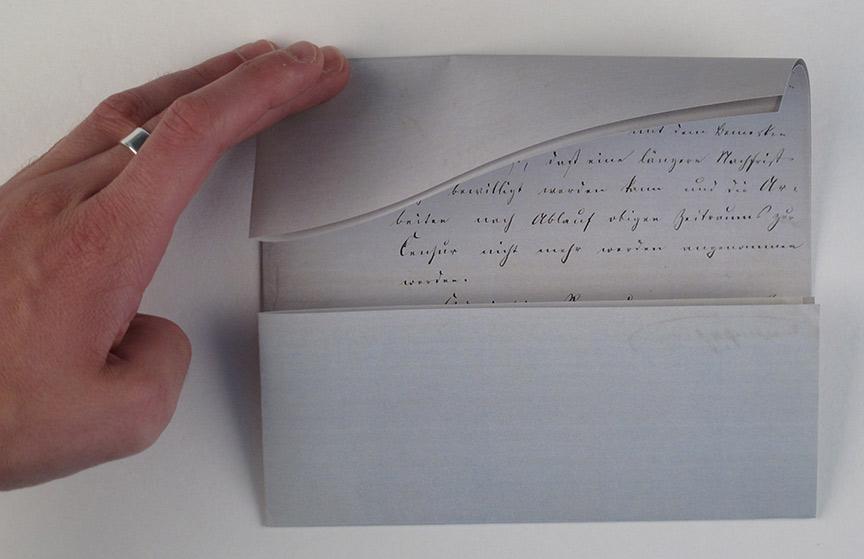 mit dem Bemerken
daß eine längere Nachfrist
bewilligt werden kann und die Ar-
beiten nach Ablauf obigen Zeitraums zur
Censur nicht mehr werden angenommen
werden.